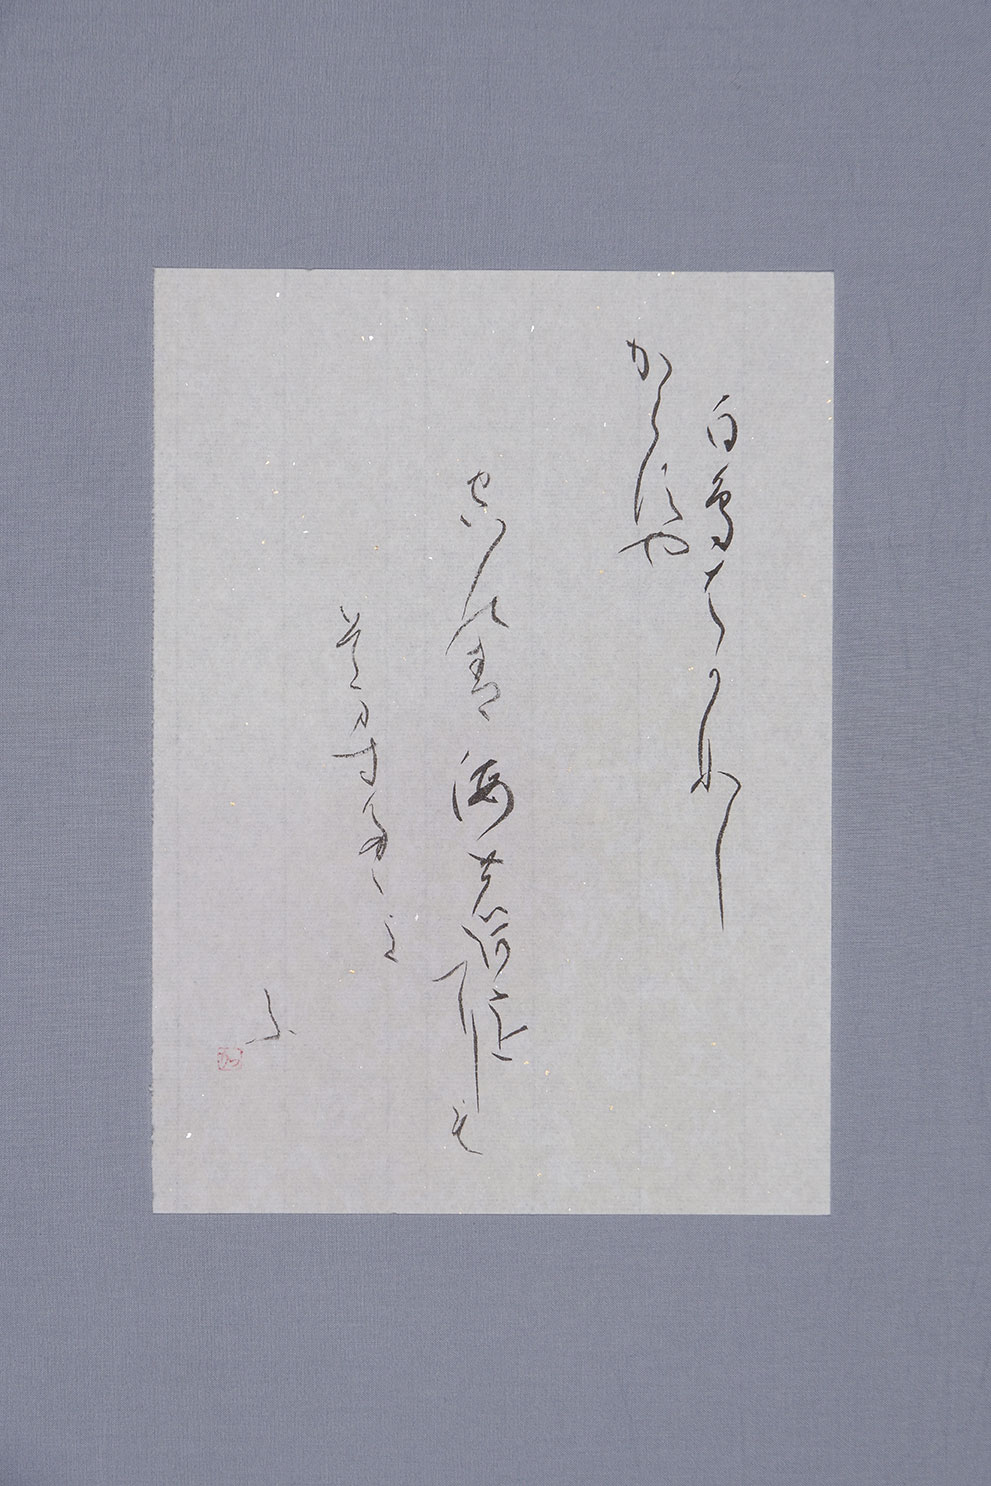 白鳥はかなし
からずや
空の青海のあをにも
そまずたゞよ
ふ